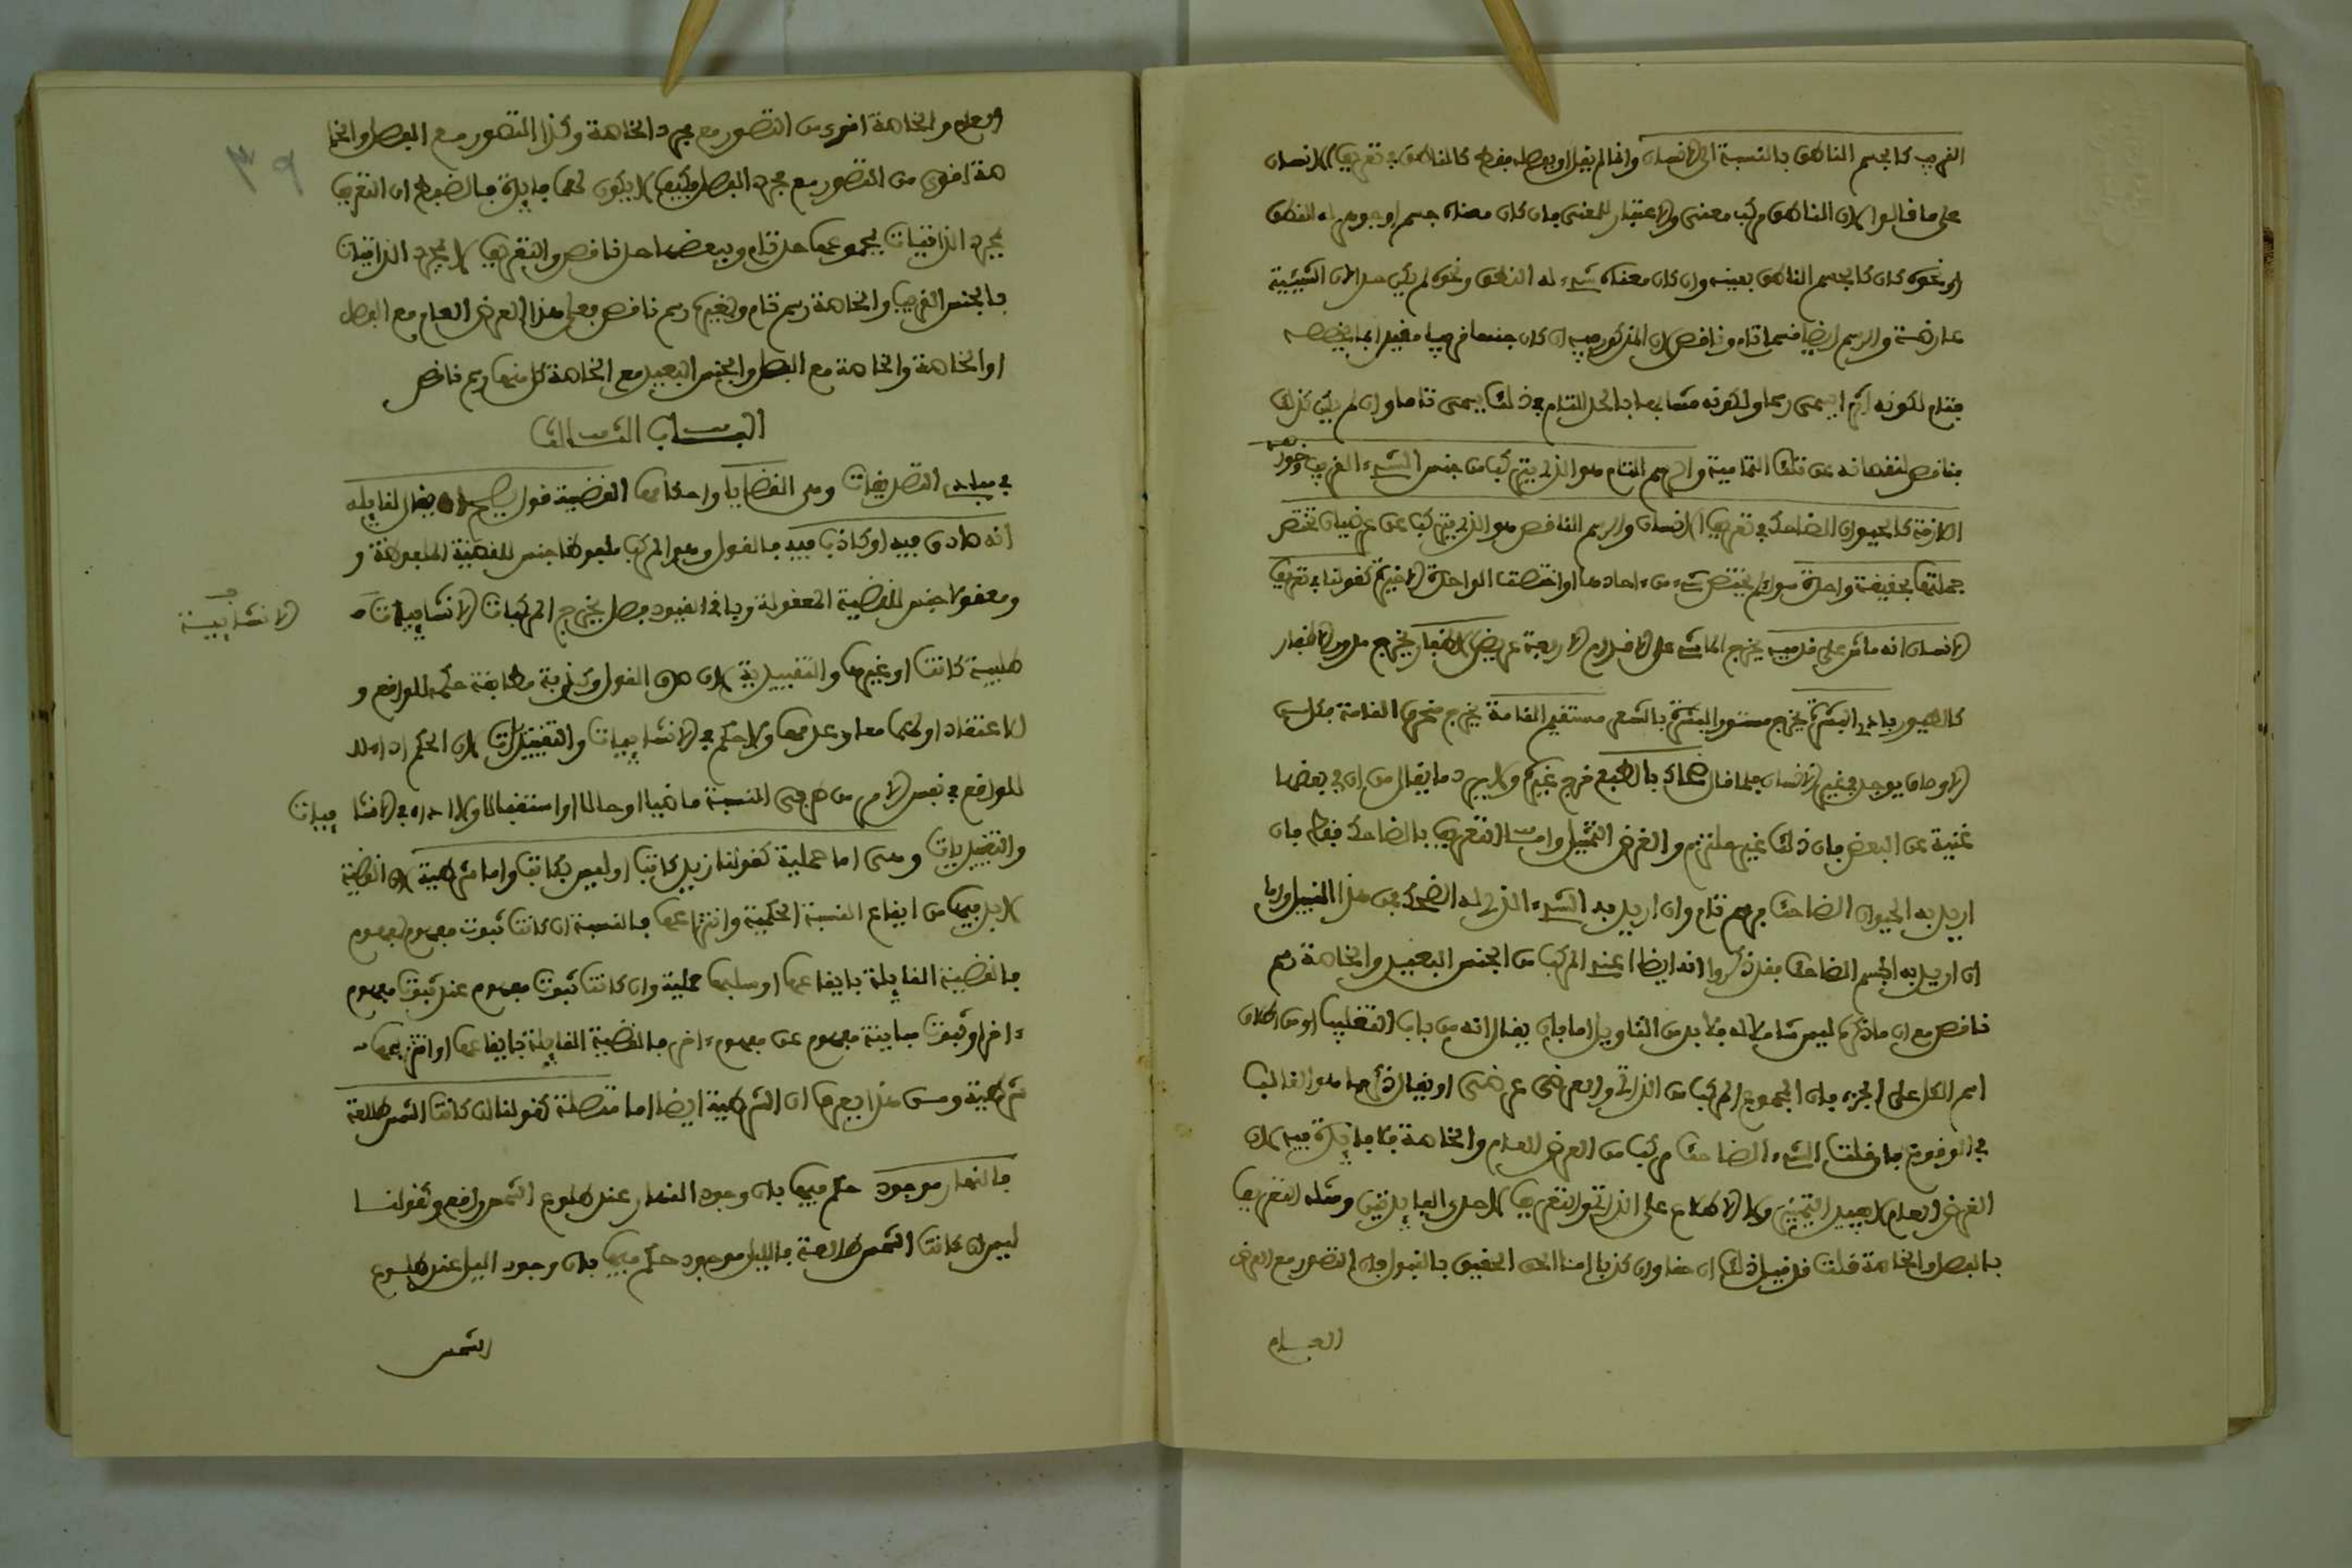 القريب كالجسم الناطق بالنسبة الى الانسان وانما لم يقل او بفصله فقط كالناطق في تعريف الانسان
على ما قالوا لان الناطق مركب معنى والاعتبار للمعنى فان كان معناه جسم او جوهر له النطق
او نحوه كان كالجسم الناطق بعينه وان كان معناه شيء له النطق ونحوه لم يكن حدا لان الشيئية
عارضة والرسم ايضا قسمان تام وناقص لان المذكور فيه ان كان جنسا قريبا مقيدا بما يخصصه
فتام لكونه اثرا يسمى رسما ولكونه مشابها بالحد التام في ذلك يسمى تاما وان لم يكن كذلك
فناقص لنقصانه عن تلك التمامية والرسم التام هو الذي يتركب من جنس الشيء القريب وخواصه
اللازمة كالحيوان الضاحك في تعريف الانسان والرسم الناقص هو الذي يتركب عن عرضيات تختص
جملتها بحقيقة واحدة سواء لم يختص شيء من ءاحادها او اختصت الواحدة الاخيرة كقولنا في تعريف
الانسان انه ماش على قدميه يخرج الماشي على الاقدام الاربعة عريض الاظفار يخرج مدور الاظفار
كالطيور بادي البشرة يخرج مستور البشرة بالشعر مستقيم القامة يخرج منحرف القامة فكل من
الاوصاف يوجد في غير الانسان فلما قال ضحاك بالطبع خرج غيره ولا يرد ما يقال من ان في بعضها
غنية عن البعض فان ذلك غير ملتزم والغرض التمثيل واما التعريف بالضاحك فقط فان
اريد به الحيوان الضاحك فرسم تام وان اريد به الشيء الذي له الضحك فمن هذا القبيل واما
ان اريد به الجسم الضاحك فقد ذكروا انه ايضا منه اذ المركب من الجنس البعيد والخاصة رسم
ناقص مع ان ما ذكره ليس شاملا له فلا بد من التاويل اما بان يقال انه من باب التغليب او من اطلاق
اسم الكل على الجزء فان المجموع المركب من الذاتي والعرضي عرضي او يقال ذكر ما هو الغالب
في الوقوع فان قلت الشيء الضاحك مركب من العرض العام والخاصة فلا فائدة فيه لان
العرض العام لا يفيد التمييز ولا الاطلاع على الذاتي والتعريف لاحدى الفائدتين ومثله التعريف
بالفصل والخاصة قلت قد قيل ذلك ان حقا وان كذبا لكن الحق الحقيق بالقبول ان التصور مع العرض
العام
العام والخاصة اقوى من التصور مع مجرد الخاصة وكذا التصور مع الفصل والخا
صة اقوى من التصور مع مجرد الفصل فكيف لا يكون لهما فائدة فالضبط ان التعريف
بمجرد الذاتيات بمجموعها حد تام وببعضها حد ناقص والتعريف لا بمجرد الذاتيات
فبالجنس القريب والخاصة رسم تام وبغيره رسم ناقص فعلى هذا العرض العام مع الفصل
او الخاصة والخاصة مع الفصل والجنس البعيد مع الخاصة كل منها رسم ناقص
البـاب الثـالث
في مبادي التصديقات وهي القضايا واحكامها القضية قول يصح ان يقال لقايله
انه صادق فيه او كاذب فيه فالقول وهو المركب ملفوظا جنس للقضية الملفوظة و
ومعقولا جنس للقضية المعقولة وباقي القيود فصل يخرج المركبات الانشاييات
الانشايية
طلبية كانت او غيرها والتقييدية لان صدق القول وكذبه مطابقة حكمه للواقع و
للاعتقاد او لهما معا وعدمها ولا حكم في الانشاييات والتقييديات لان الحكم اداه
للواقع في نفس الامر من طرفي النسبة ماضيا او حالا او استقبالا ولا اداه في الانشاييات
والتقييديات وهي اما حملية كقولنا زيد كاتب او ليس بكاتب واما شرطية لان القضية
لابد فيها من ايقاع النسبة الحكمية وانتزاعها فالنسبة ان كانت ثبوت مفهوم لمفهوم
فالقضية القايلة بايقاعها او سلبها حملية وان كانت ثبوت مفهوم عند ثبوت مفهوم
ءاخر او ثبوت مباينة مفهوم عن مفهوم ءاخر فالقضية القايلة بايقاعها او انتزاعها
شرطية ومن هذا يعرف ان الشرطية ايضا اما متصلة كقولنا ان كانت الشمس طالعة
فالنهار موجود حكم فيها بان وجود النهار عند طلوع الشمس واقع وكقولنا
ليس ان كانت الشمس طالعة فالليل موجود حكم فيها بان وجود الليل عند طلوع
الشمس
٣٩